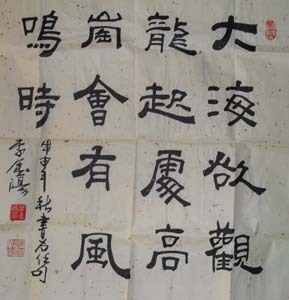 大海欲觀
龍起處高
崗會有風
鳴時
甲申年秋書右任句
李